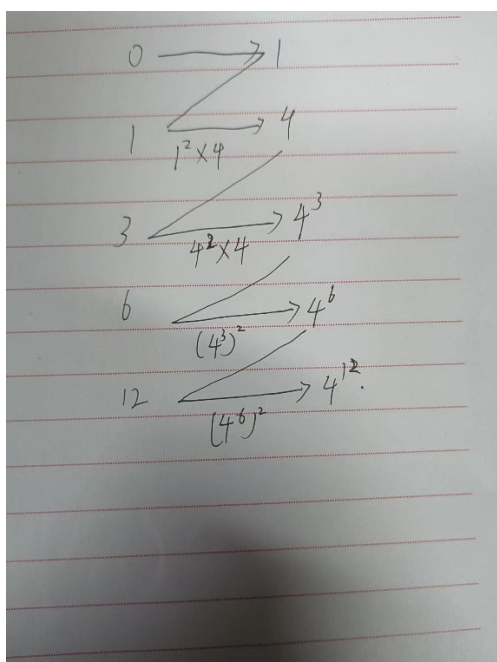 0 → 1
1 → 4
1² × 4
3 → 4³
4² × 4
6 → 4⁶
(4³)²
12 → 4¹².
(4⁶)²